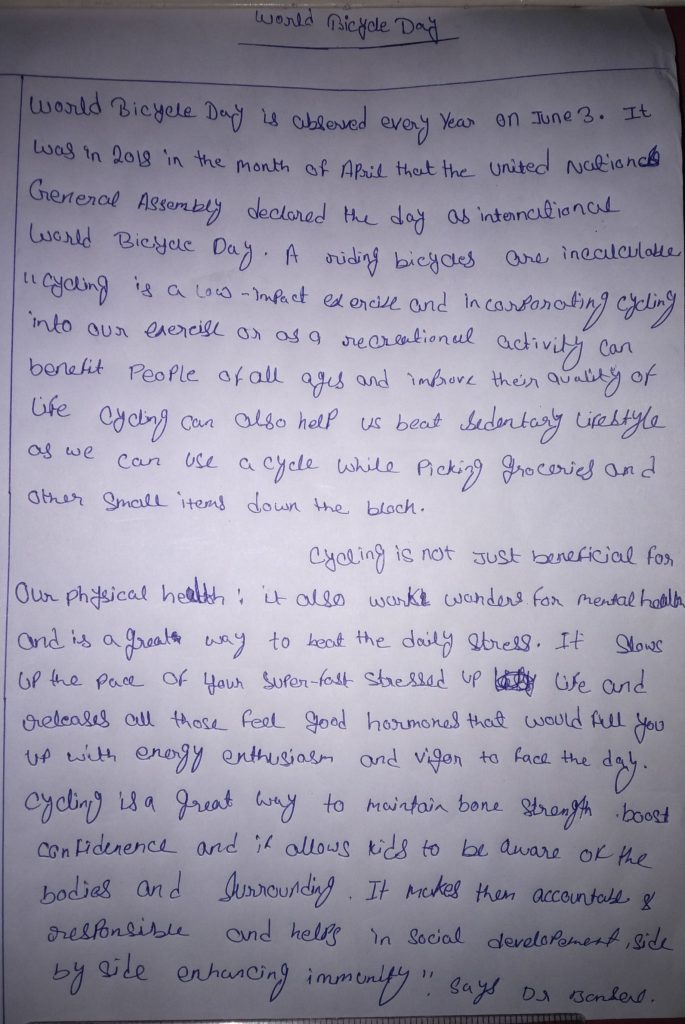 World Bicycle Day
World Bicycle Day is observed every Year on June 3. It
was in 2018 in the month of April that the United Nations
General Assembly declared the day as international
World Bicycle Day. A riding bicycles are incalculable
"Cycling is a low-impact exercise and incorporating cycling
into our exercise or as a recreational activity can
benefit People of all ages and improve their quality of
Life Cycling can also help us beat Sedentary Lifestyle
as we can use a cycle while Picking groceries and
other Small items down the block.
Cycling is not Just beneficial for
Our physical health ; it also works wonders for mental health
and is a great way to beat the daily Stress. It Slows
UP the Pace of Your Super-fast Stressed up life and
releases all those feel good hormones that would fill you
up with energy enthusiasm and vigor to face the day.
Cycling is a great way to maintain bone Strength. boost
Confidenence and it allows kids to be aware of the
bodies and Surrounding. It makes them accountable &
responsible and helps in Social developement, side
by side enhancing immunity". Says Dr